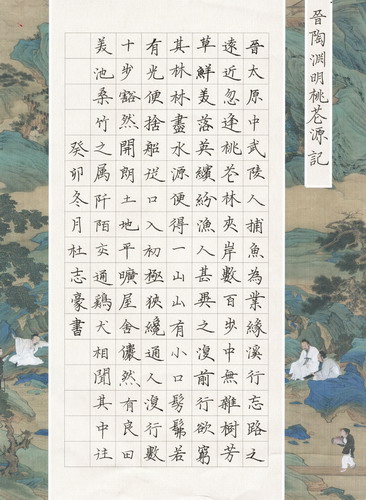 晉陶渊明桃花源記
晉太原中武陵人捕魚為業緣溪行忘路之
遠近忽逢桃花林夾岸數百步中無雜樹芳
草鮮美落英繽紛漁人甚異之復前行欲窮
其林林盡水源便得一山山有小口髣髴若
有光便捨船從口入初極狹纔通人復行數
十步豁然開朗土地平曠屋舍儼然有良田
美池桑竹之属阡陌交通鷄犬相聞其中往
癸卯冬月杜志豪書